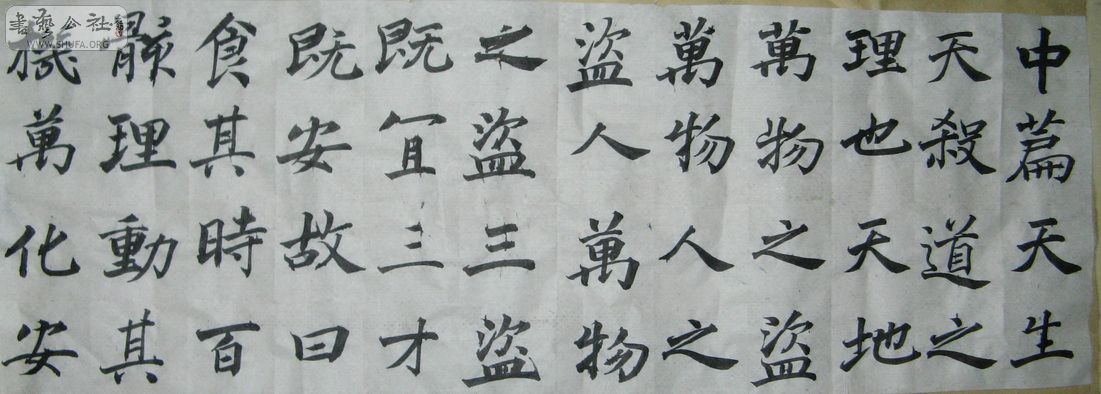 中篇天生
天殺道之
理也天地
萬物之盜
萬物人之
盜人萬物
之盜三盜
既冝三才
既安故曰
食其時百
骸理動其
機萬化安
書藝公社
WWW.SHUFA.ORG